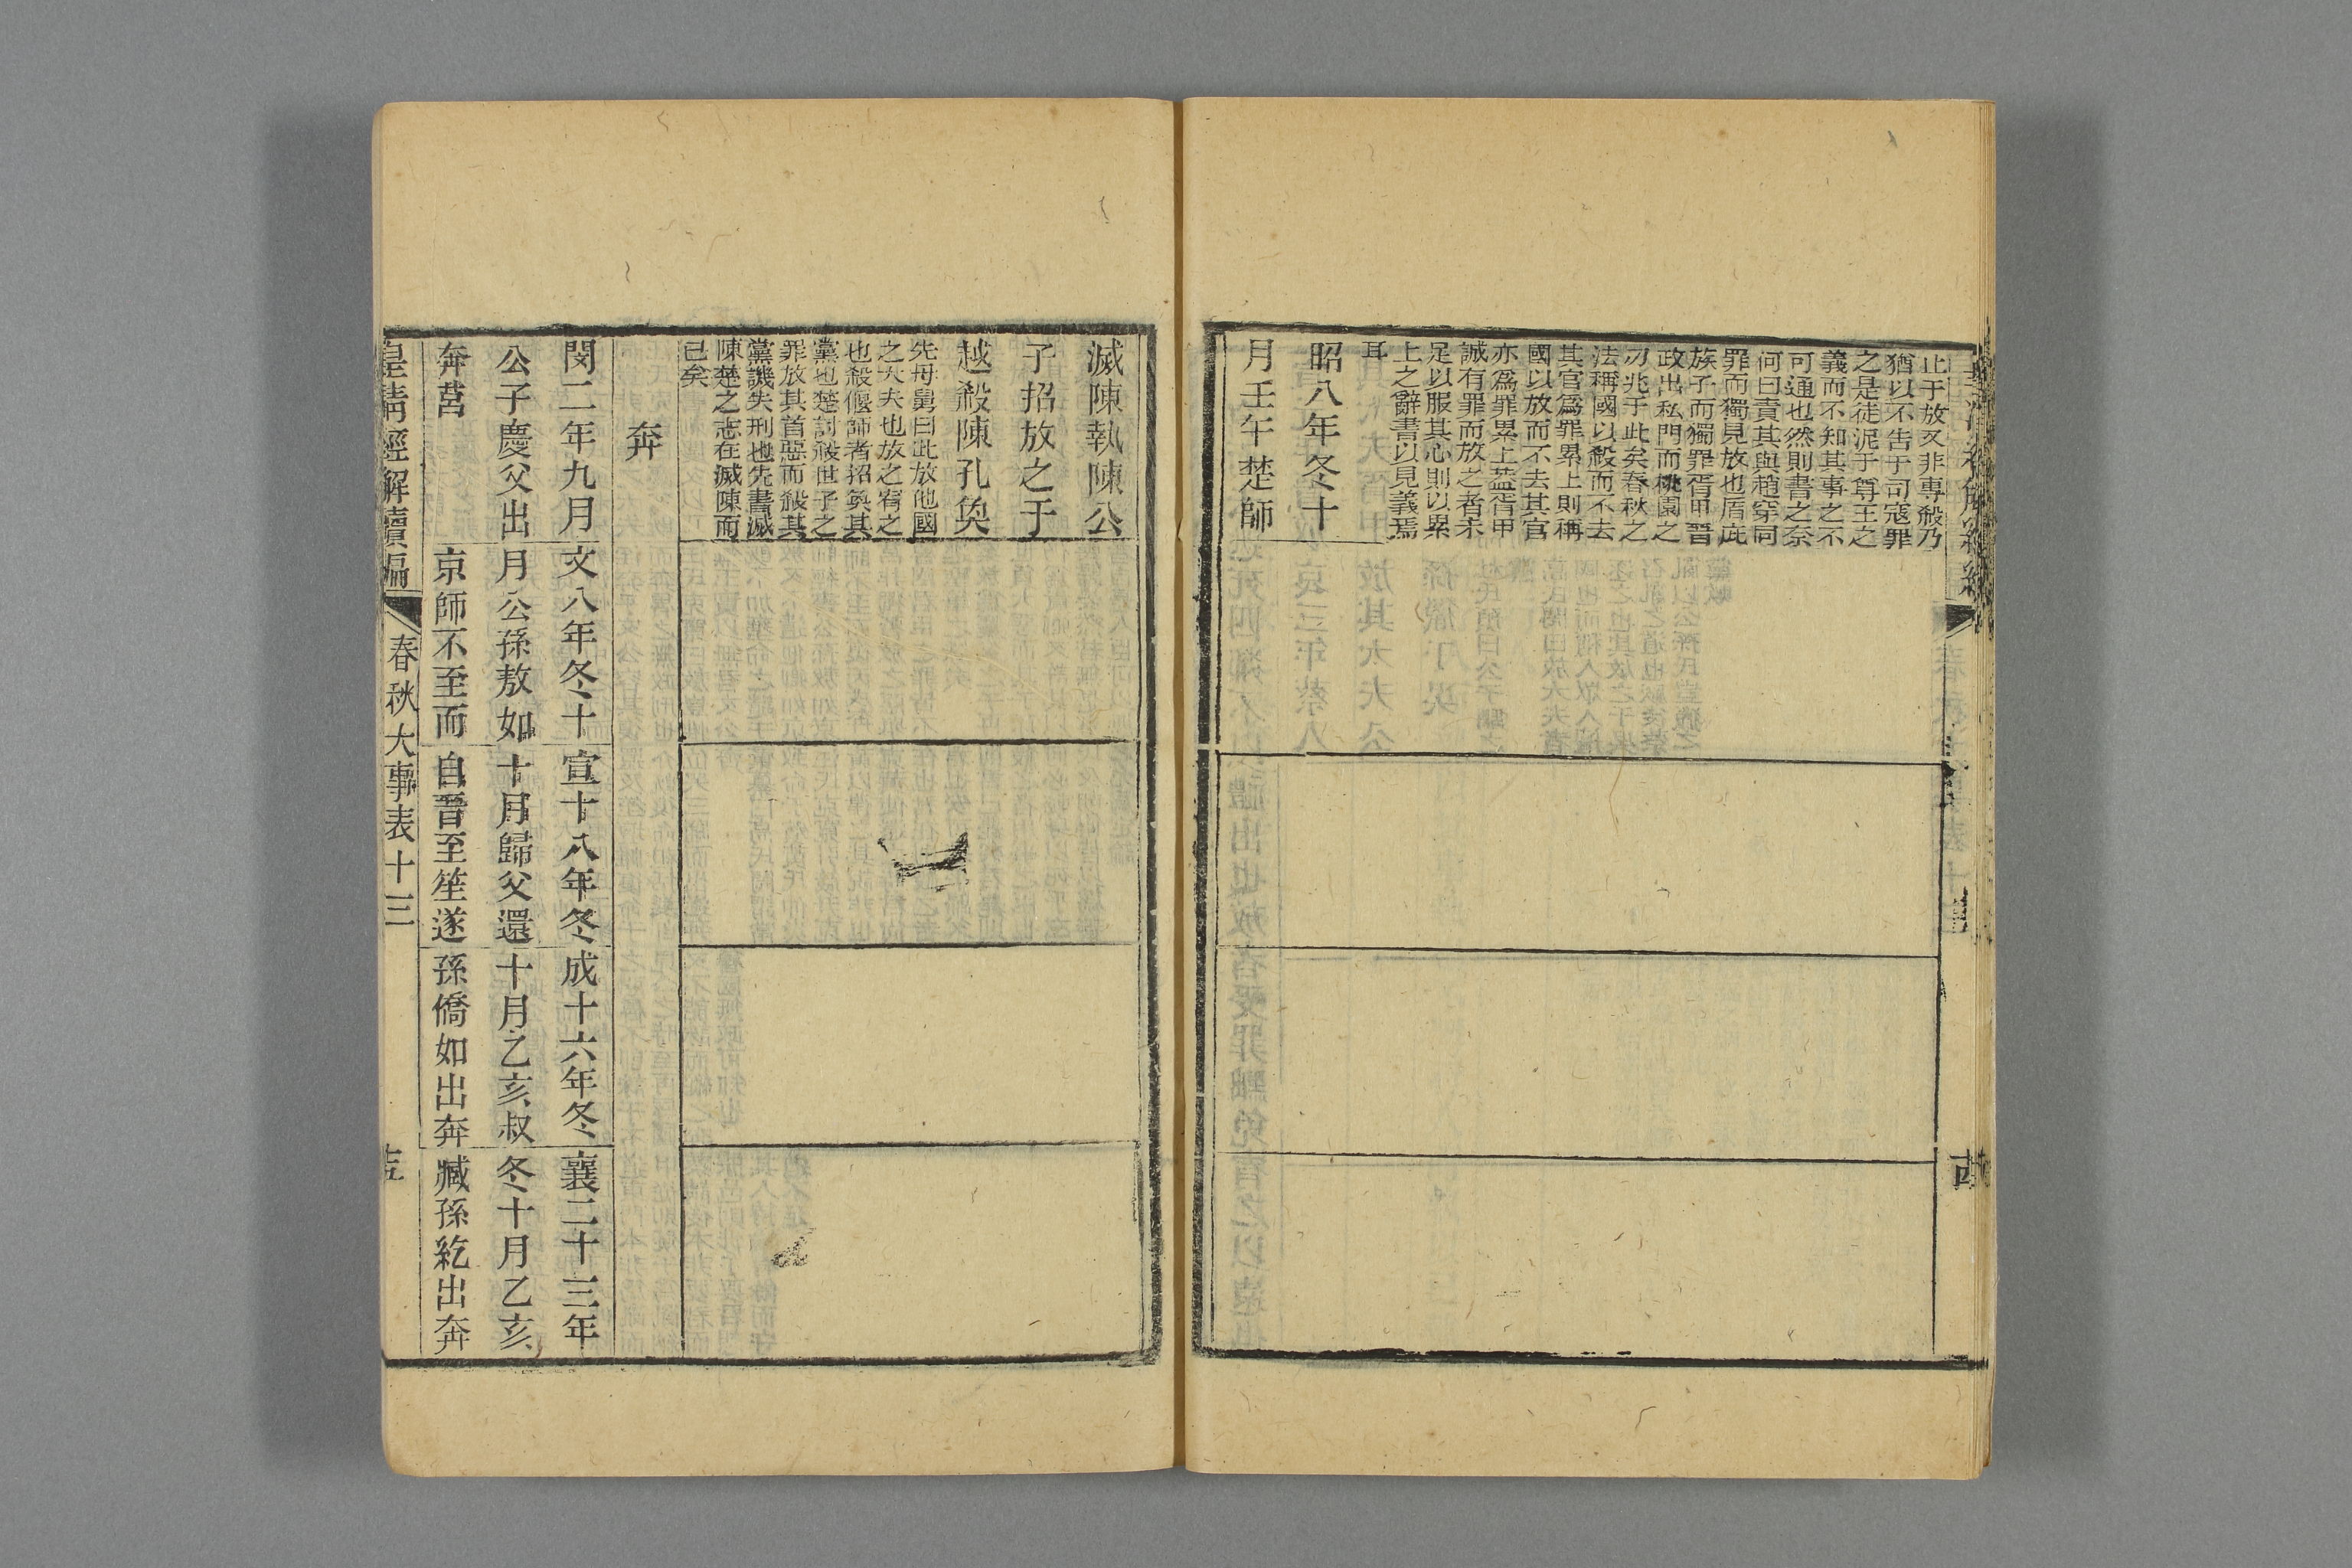 止于放又非專殺乃
猶以不告于司寇罪
之是徒泥于尊王之
義而不知其事之不
可通也然則書之奈
何曰責其與趙穿同
罪而獨見放也厝此
族子而獨罪胥甲晉
政出私門而桃園之
刃兆于此矣春秋之
法稱國以殺而不去
其官爲罪累上則稱
國以放而不去其官
亦爲罪累上葢胥甲
誠有罪而放之者未
足以服其心則以累
上之辭書以見義焉
耳
昭八年冬十
月壬午楚師
滅陳執陳公
子招放之于
越殺陳孔奐
先母舅曰此放他國
之大夫也放之宥之
也殺偃師者招奐其
黨也楚討殺世子之
罪放其首惡而殺其
黨譏失刑也先書滅
陳楚之志在滅陳而
已矣
奔
閔二年九月
公子慶父出
奔莒
文八年冬十
月公孫敖如
京師不至而
宣十八年冬
十月歸父還
自晉至笙遂
成十六年冬
十月乙亥叔
孫僑如出奔
襄二十三年
冬十月乙亥
臧孫紇出奔
皇清經解續編
春秋大事表十三